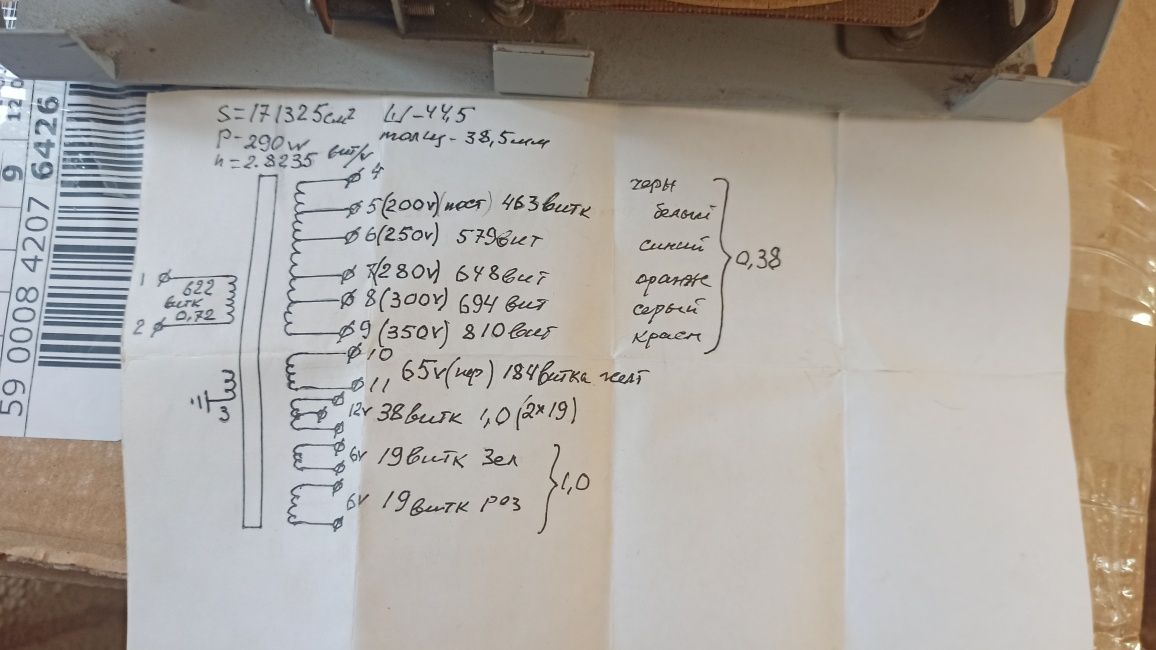 S=171325см² Ш-44,5
P-290w толщ-38,5мм
n=2.8235 вит/v
4 черн
5(200v)(пост) 463витк белый
6(250v) 579вит синий
7(280v) 648вит оранж
8(300v) 694вит серый
9(350v) 810вит красн
0,38
1
622
витк
0,72
2
10
65v(пер) 184витка желт
11
12v 38витк 1,0(2×19)
3
6v 19витк Зел
6v 19витк Роз
1,0
59 0008 4207 6426